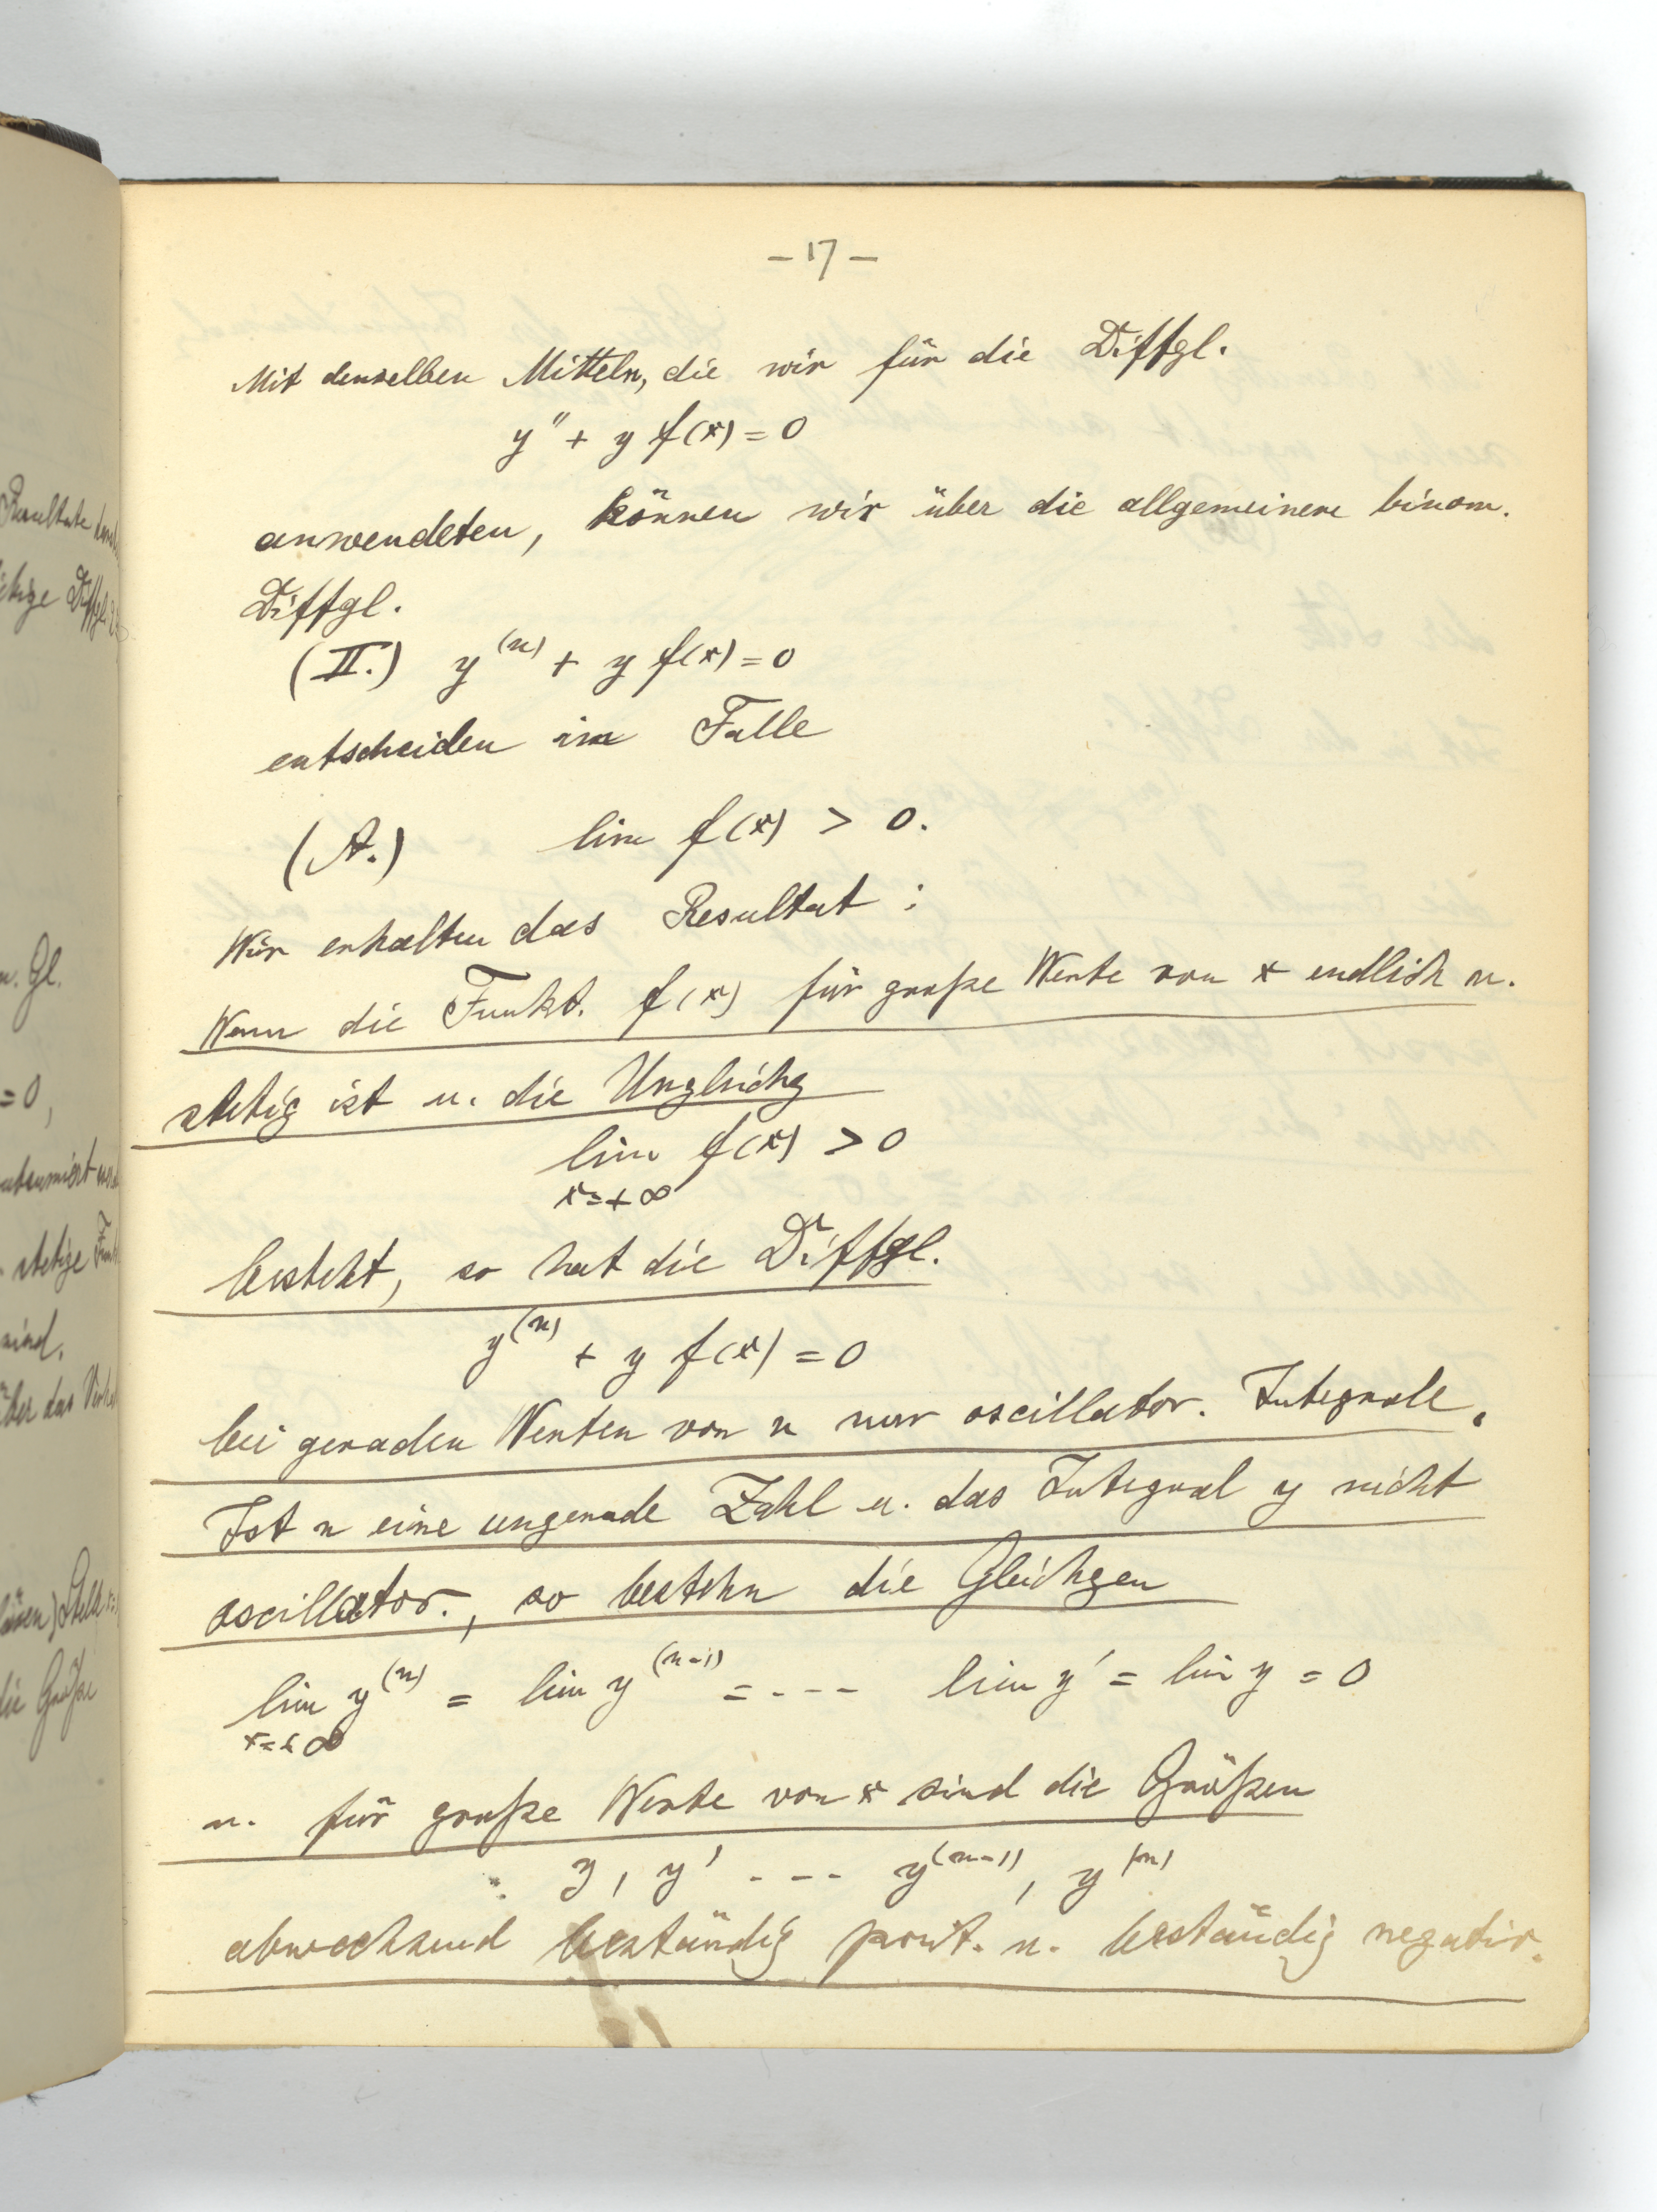 – 17 –
Mit denselben Mitteln, die wir für die Diffgl.
y″ + y f(x) = 0
anwendeten, können wir über die allgemeinere binom.
Diffgl.
(II.) y^(n) + y f(x) = 0
entscheiden im Falle
(A.) lim f(x) > 0.
Wir erhalten das Resultat :
Wenn die Funkt. f(x) für große Werte von x endlich u.
stetig ist u. die Unglchg
lim f(x) > 0
x=+∞
besteht, so hat die Diffgl.
y^(n) + y f(x) = 0
bei geraden Werten von n nur oscillator. Integrale.
Ist n eine ungerade Zahl u. das Integral y nicht
oscillator., so bestehn die Gleichgen
lim y^(n) = lim y^(n-1) = - - - - lim y′ = lim y = 0
x=+∞
u. für große Werte von x sind die Größen
y, y′ - - - - y^(n-1), y^(n)
abwechsend beständig posit. u. beständig negativ.
Resultate
Diffgl.
n. Gl.
= 0,
stetige
sind.
über das
die Größe